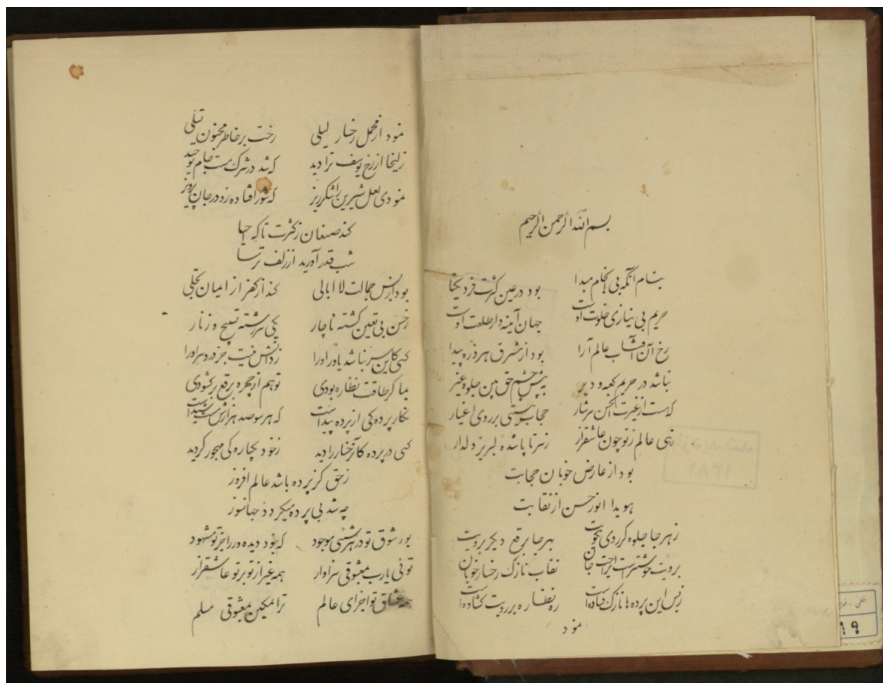 بسم الله الرحمن الرحیم
بنام آنکه بی انجام مبدا بود در عین کثرت فرد یکتا
حریم بی نیازی خلوت اوست جهان آینه دار طلعت اوست
رخ آن آفتاب عالم آرا بود از مشرق هر ذره پیدا
نباشد در حرم کعبه و دیر به پیش چشم حق بین جلوه غیر
که هست از غیرت حجاب هستی بر روی اغیار
زهی عالم ز تو چون عاشق زار ز سر تا پا شده لبریز دلدار
بود از عارض خوبان حجابت
هویدا نور حسن از نقابت
ز هر جا جلوه کردی بهر جا برقع دیگر برویت
برویت نقاب نازک رخسار خوبان
ز بس این پرده ها نازک ره نظاره بر رویت
نمود
نمود از محمل رخسار لیلی رخت بر خاطر مجنون تجلی
زلیخا از رخ یوسف ترا دید که شد در شرک مست جام توحید
نمودی لعل شیرین را شکرریز که شور افتاده زو در جان پرویز
کند صنعان ز کثرت تا که
شب قدر آورید از زلف ترسا
بود از بس جمالت لاابالی کند از کفر از ایمان تجلی
رخش بی تعین گشته ناچار یکی سررشته تسبیح و زنار
کسی کاین سر نباشد یاور او را ز دانش نیست جز دردسر او را
بما گر طاقت نظاره بودی تو هم از چهره برقع برگشودی
نگار پردگی از پرده پیداست که هر سو صد هزارش
کسی در پرده کان رخسار را دید ز خود بیچاره کی مهجور گردید
رخی کز پرده باشد عالم افروز
چه شد بی پرده میگردد جهانسوز
بود شوق تو در هر شیئی موجود که بخود دیده ور را جز تو مشهود
توئی یارب معشوقی سزاوار همه غیر از تو بر تو عاشق زار
همه عشاق تو اجزای عالم ترا تمکین معشوقی مسلم
۱۸۶۱